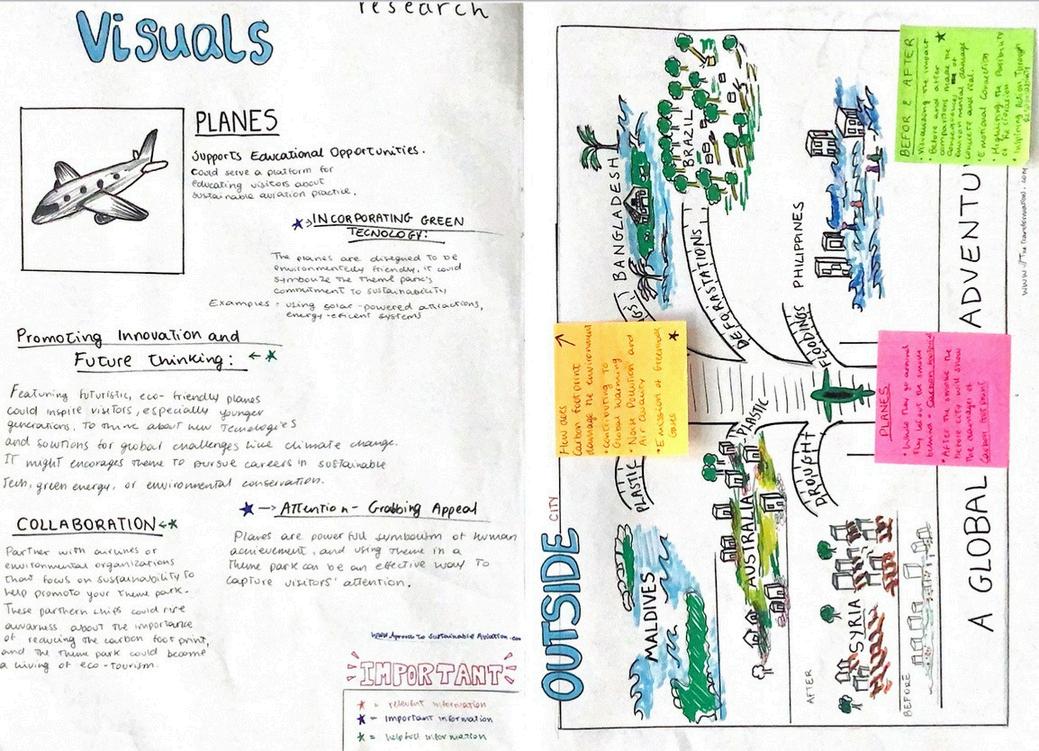 research
Visuals
PLANES
Supports Educational Opportunities.
Could serve a platform for
educating visitors about
sustainable aviation practice.
INCORPORATING GREEN
TECNOLOGY:
The planes are disigned to be
environmentelly friendly, it could
symbolize the theme park's
commitment to sustainability
Examples: using solar-powered attractions,
energy-efficent systems
Promoting Innovation and
Future thinking:
Featuring futuristic, eco-friendly planes
could inspire visitors, especially younger
generations, to think about new Tecnologies
and solutions for global challenges like climate change.
It might encorages theme to pursue careers in sustainable
Tech, green energy, or environmental conservation.
COLLABORATION
Partner with airlines or
environmental organizations
that focus on sustainability to
help promoto your theme park.
These parthern chips could rise
awarness about the importance
of reducing the carbon foot print,
and the theme park could become
a living of eco-tourism.
Attention-Grabbing Appeal
Planes are powerfull symbolism of human
achievement, and using theme in a
Theme park can be an effective way to
capture visitors' attention.
IMPORTANT
= relevent information
= important information
= helpfull information
OUTSIDE
CITY
MALDIVES
PLASTIC
AUSTRALIA
PLASTIC
SYRIA
DROUGHT
AFTER
BEFORE
BANGLADESH
BRAZIL
DEFORASTATIONS
PHILIPPINES
FLOODINGS
A GLOBAL
ADVENTU
How does
Carbon foot print
damage the environment
• Contributing to
Global Warming
• Noise Pollution and
Air
• Emission of Greenhouse
Gases
PLANES
• While they go around
they let out the smoke
behind Carbon footprint
• After the smoke the
before city will show
the damages of
Carbon foot print
BEFOR & AFTER
• Visualizing the impact
• Before and after
comparisons made the
environmental damage
concrete and real.
• Emotional Connection
• Highlighting the Possibility
of
• Inspiring Action Through